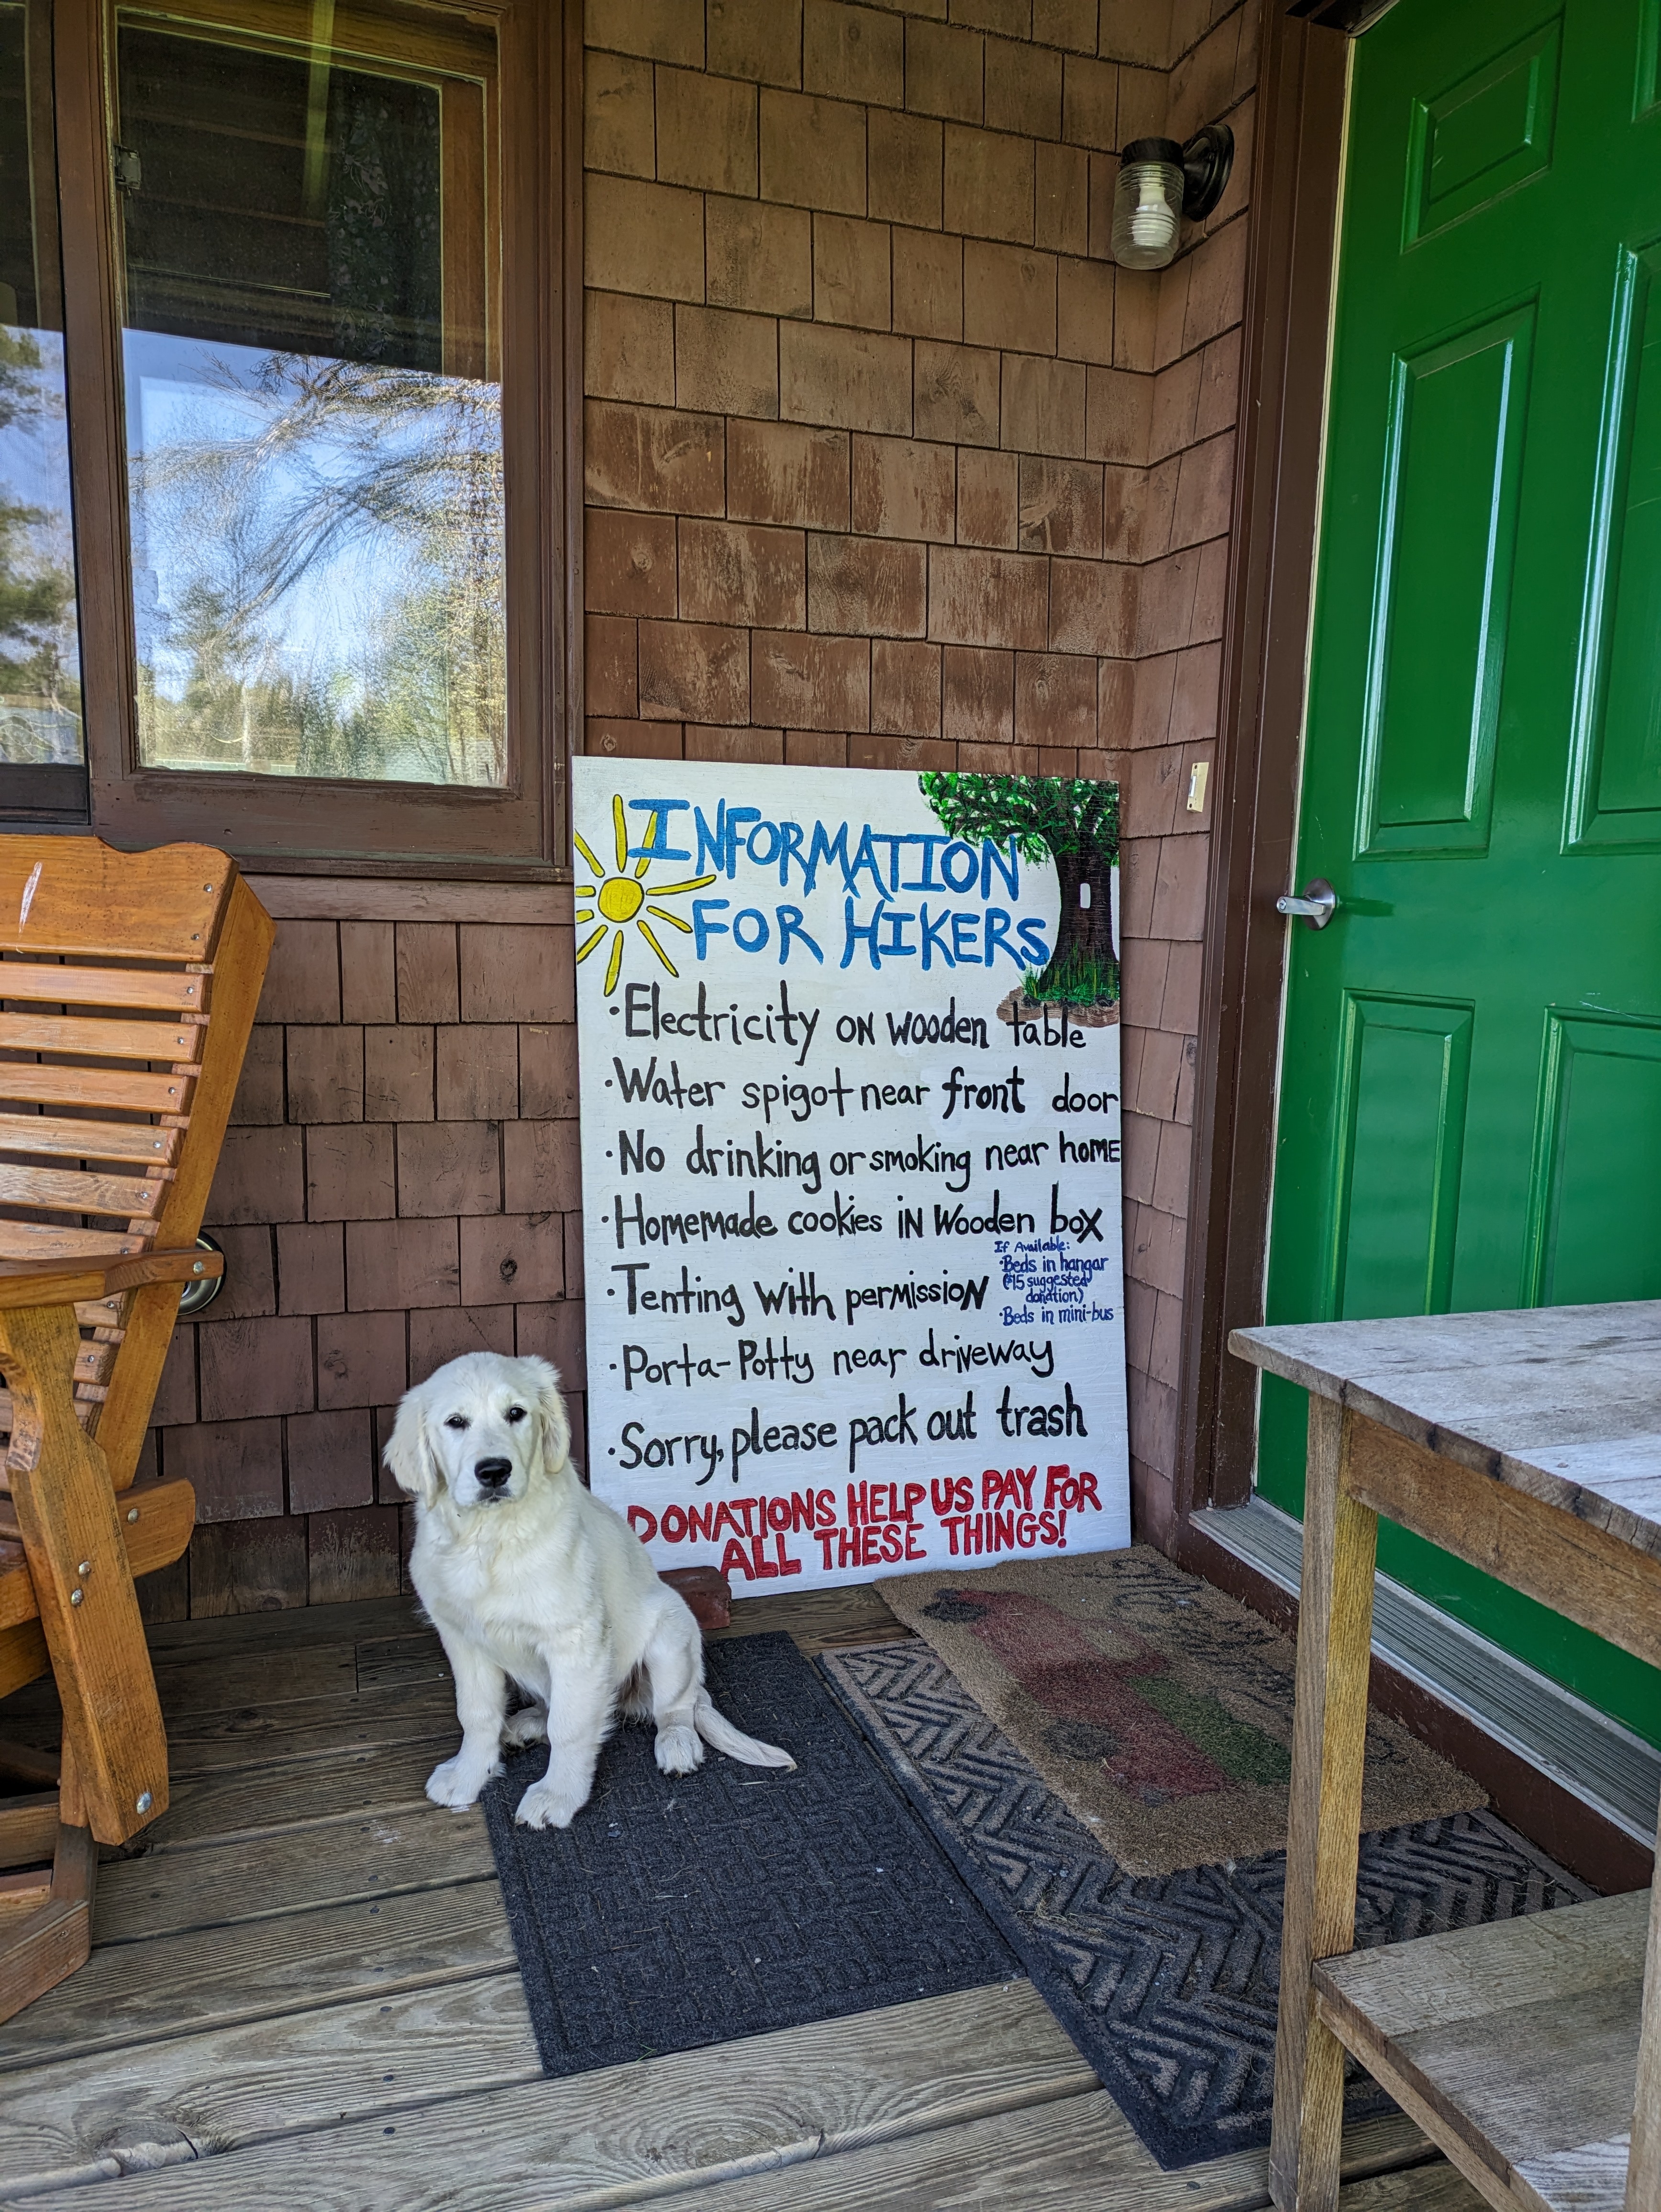 INFORMATION
FOR HIKERS
·Electricity ON wooden table
·Water spigot near front door
·No drinking or smoking near homE
·Homemade cookies iN Wooden box
If Available:
·Beds in hangar
($15 suggested
donation)
·Beds in mini-bus
·Tenting with permissioN
·Porta-Potty near driveway
·Sorry, please pack out trash
DONATIONS HELP US PAY FOR
ALL THESE THINGS!